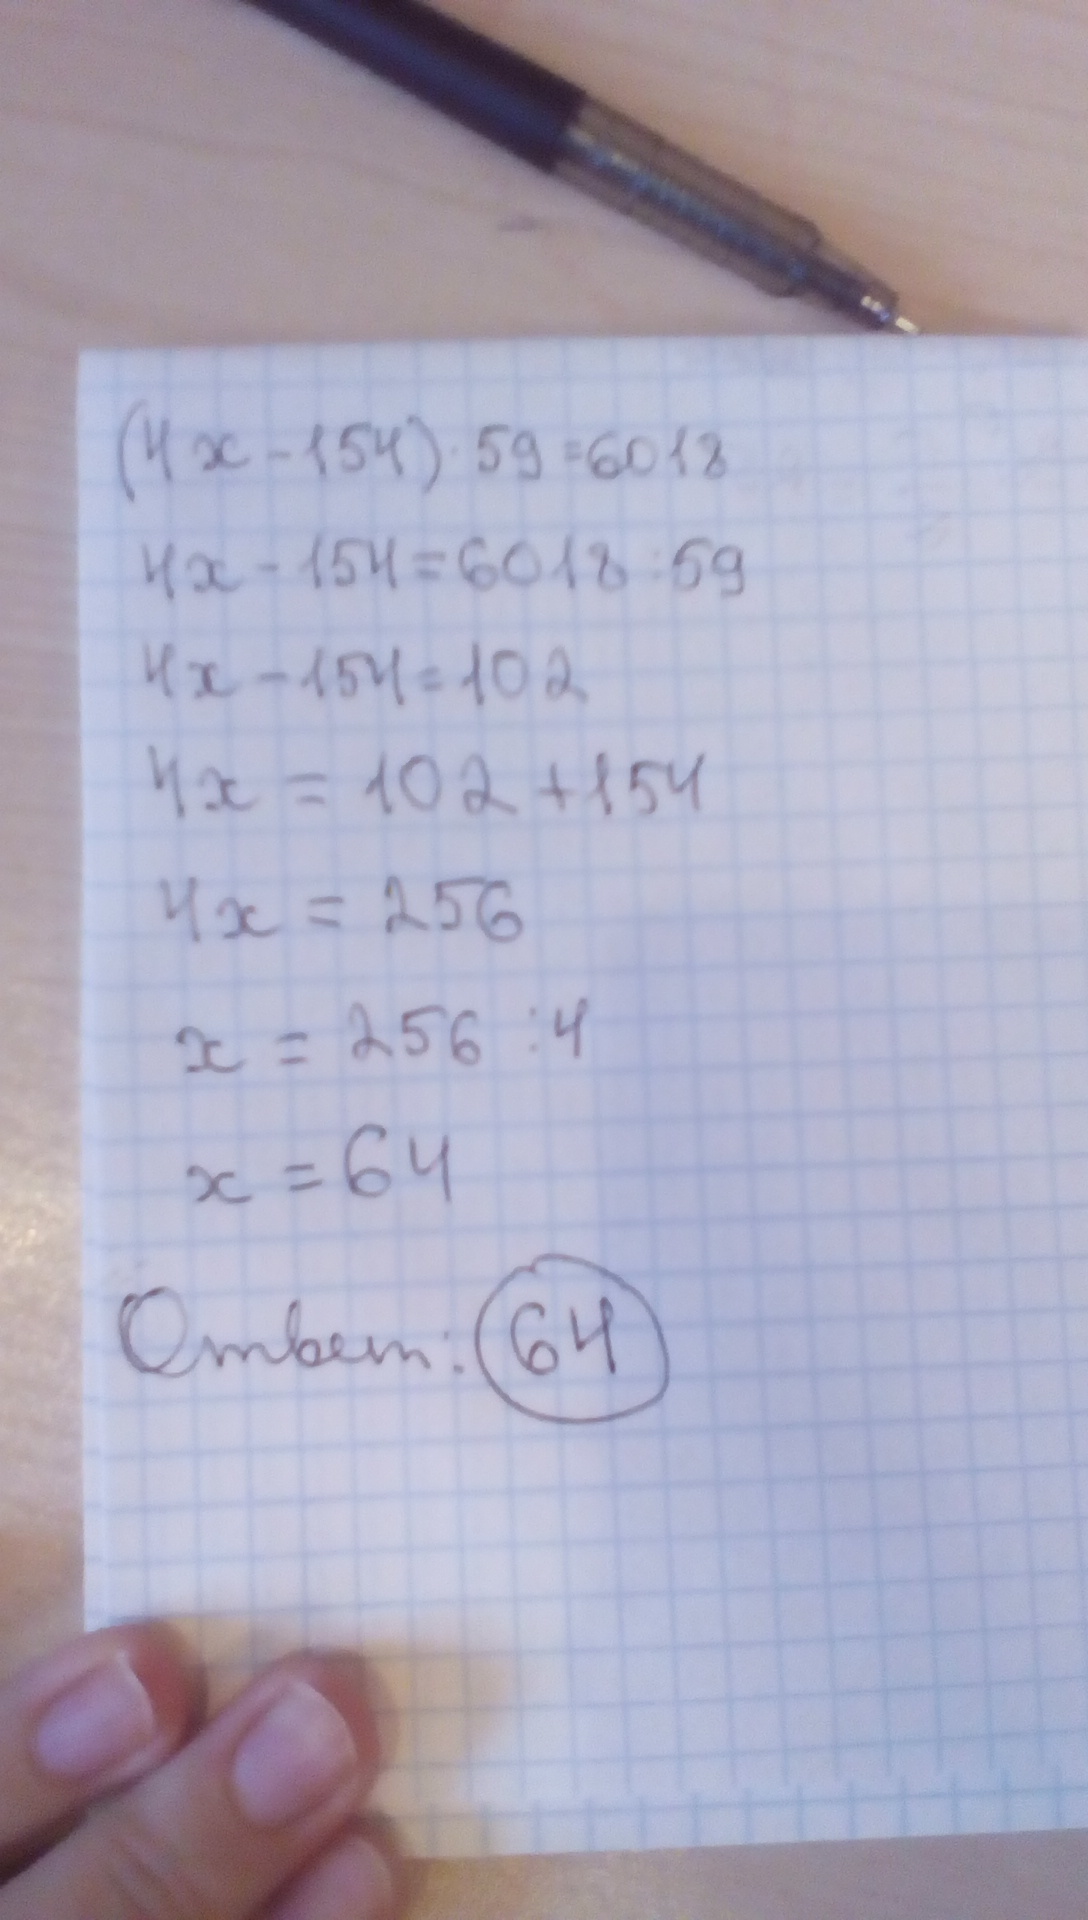 (4x-154)·59=6018
4x-154=6018:59
4x-154=102
4x=102+154
4x=256
x=256:4
x=64
Ответ: 64